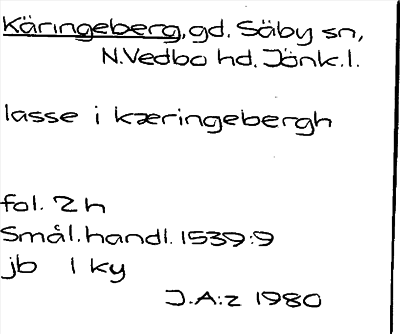 Käringeberg, gd. Säby sn,
N.Vedbo hd. Jönk.l.
lasse i kæringebergh
fol. 2 h
Smål.handl. 1539:9
jb 1 ky
J.A:z 1980